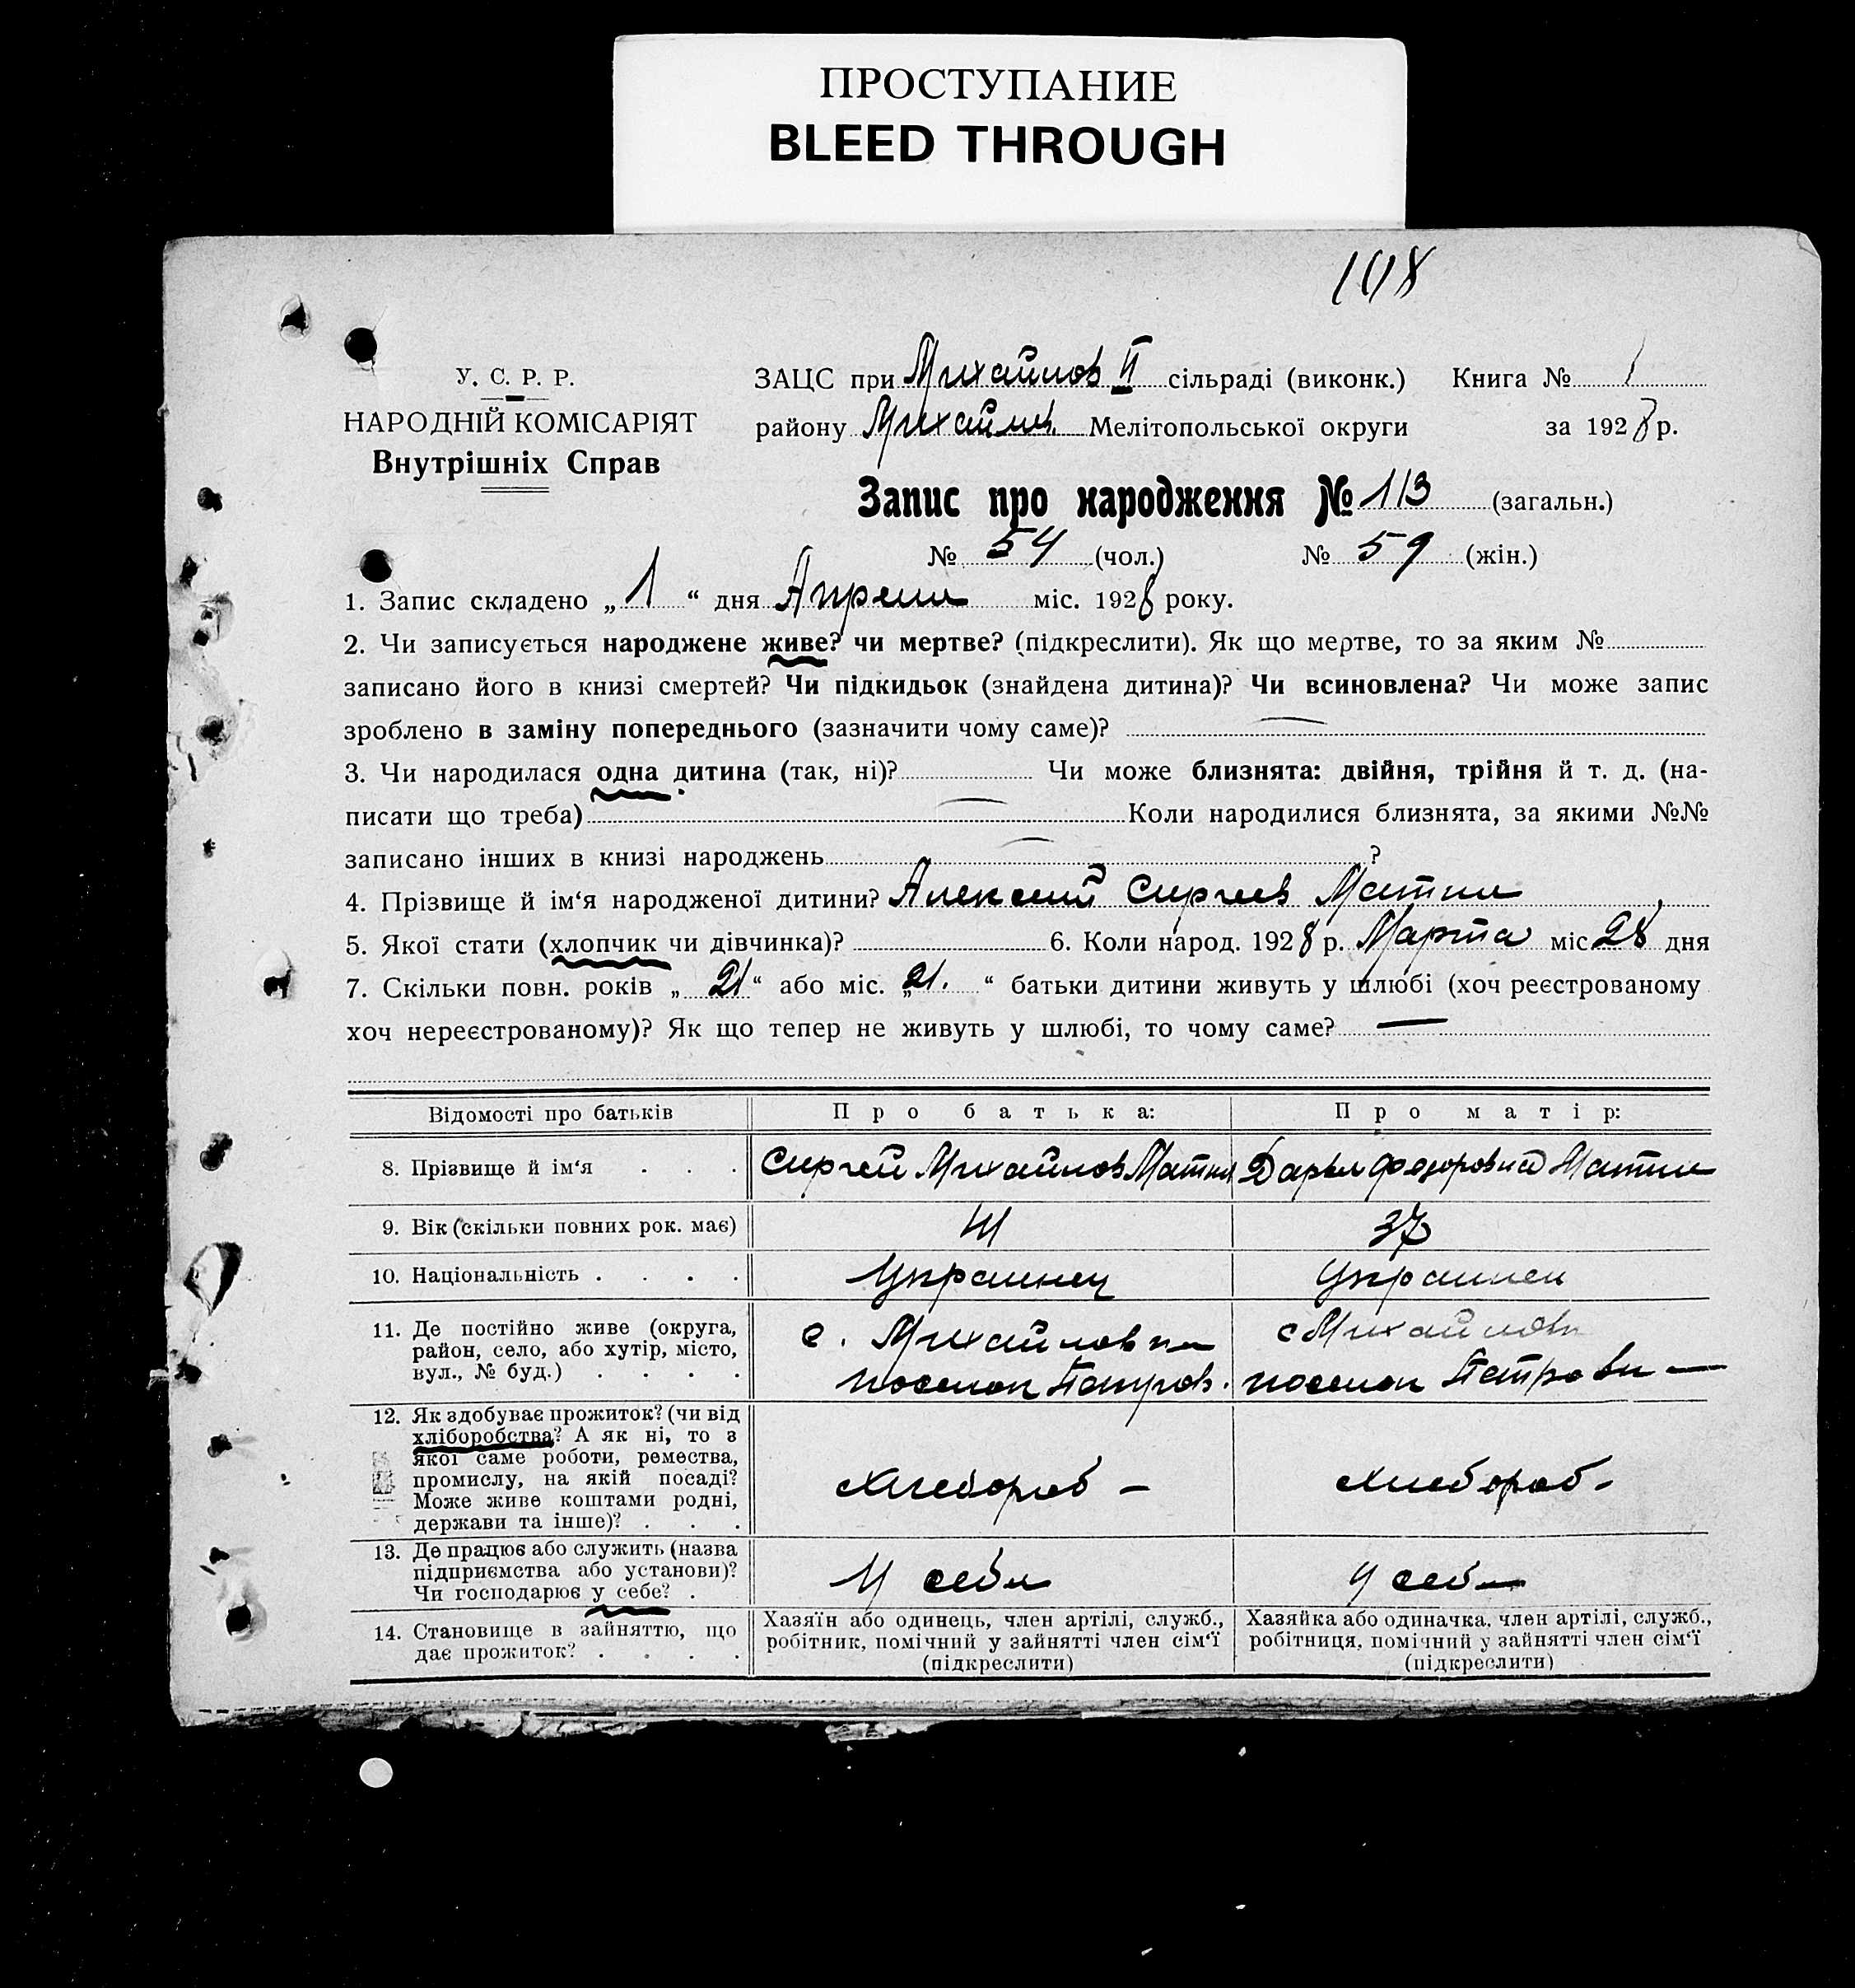 ПРОСТУПАНИЕ
BLEED THROUGH
108
У. С. Р. Р.
НАРОДНІЙ КОМІСАРІЯТ
Внутрішніх Справ
ЗАЦС при Михайлов II сільраді (виконк.) Книга № 1
району Михайлов. Мелітопольської округи за 1928 р.
Запис про народження № 113 (загальн.)
№ 54 (чол.) № 59 (жін.)
1. Запис складено „ 1 “ дня Апреля міс. 1928 року.
2. Чи записується народжене живе? чи мертве? (підкреслити). Як що мертве, то за яким №
записано його в книзі смертей? Чи підкидьок (знайдена дитина)? Чи всиновлена? Чи може запис
зроблено в заміну попереднього (зазначити чому саме)? —
3. Чи народилася одна дитина (так, ні)? Чи може близнята: двійня, трійня й т. д. (на-
писати що треба) — Коли народилися близнята, за якими №№
записано інших в книзі народжень — ?
4. Прізвище й ім‘я народженої дитини? Алексей Сергеев
5. Якої стати (хлопчик чи дівчинка)? 6. Коли народ. 1928 р. Марта міс 28 дня
7. Скільки повн. років „ 21 “ або міс. „ 21. “ батьки дитини живуть у шлюбі (хоч реєстрованому
хоч нереєстрованому)? Як що тепер не живуть у шлюбі, то чому саме? —
Відомості про батьків Про батька: Про матір:
8. Прізвище й ім‘я . . . Сергей Михайлов Дарья Федоровна
9. Вік (скільки повних рок. має) 41 37
10. Національність . . . . Украинец Украинец
11. Де постійно живе (округа,
район, село, або хутір, місто,
вул., № буд.) . . . .
с. Михайловка
поселок Петров.
с Михайловк
поселок Петровк —
12. Як здобуває прожиток? (чи від
хліборобства? А як ні, то з
якої саме роботи, ремества,
промислу, на якій посаді?
Може живе коштами родні,
держави та інше)? . . .
хлебороб –
хлебороб -
13. Де працює або служить (назва
підприємства або установи)?
Чи господарює у себе? .
У себя
У себя
14. Становище в зайняттю, що
дає прожиток? . . . .
Хазяїн або одинець, член артілі, служб.,
робітник, помічний у зайнятті член сім‘ї
(підкреслити)
Хазяйка або одиначка, член артілі, служб.,
робітниця, помічний у зайнятті член сім‘ї
(підкреслити)